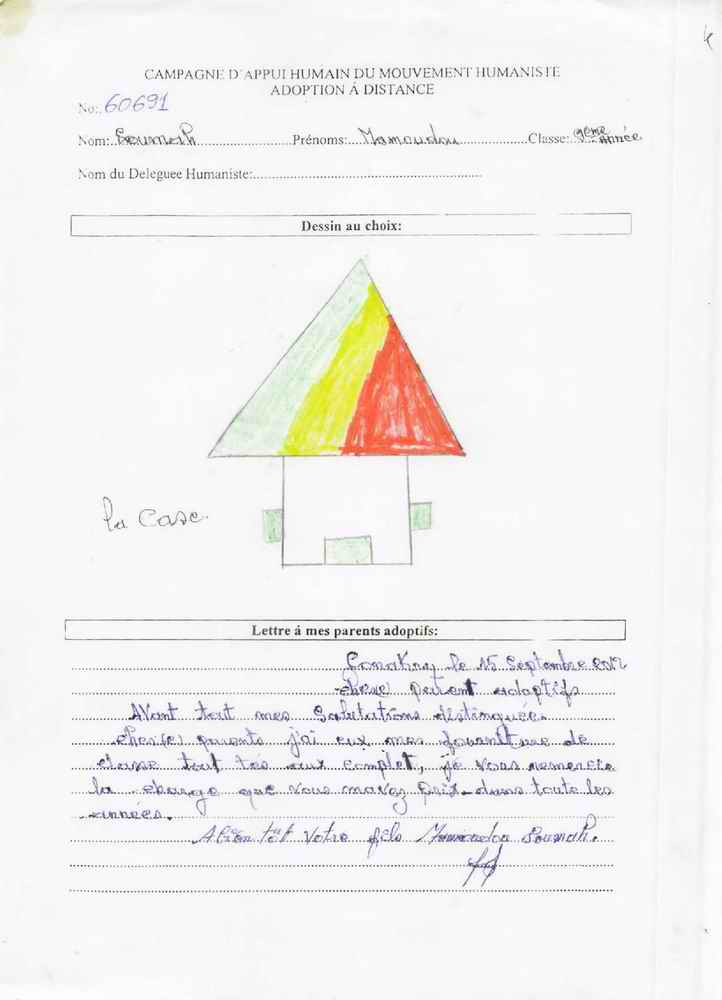 CAMPAGNE D'APPUI HUMAIN DU MOUVEMENT HUMANISTE
ADOPTION Á DISTANCE
No: 60691
Nom: Soumah Prénoms: Mamoudou Classe: 9ème année
Nom du Deleguee Humaniste:
Dessin au choix:
la case
Lettre á mes parents adoptifs:
Conakry le 15 Septembre 2012
cher(e) parent adoptifs
Avant tout mes Salutations distinguée.
cher(e) parents j'ai eux mes fourniture de
classe tout aux complet, je vous remercie
la charge que vous mavez prix dans toute les
années.
A bien tôt votre fils Mamoudou Soumah.